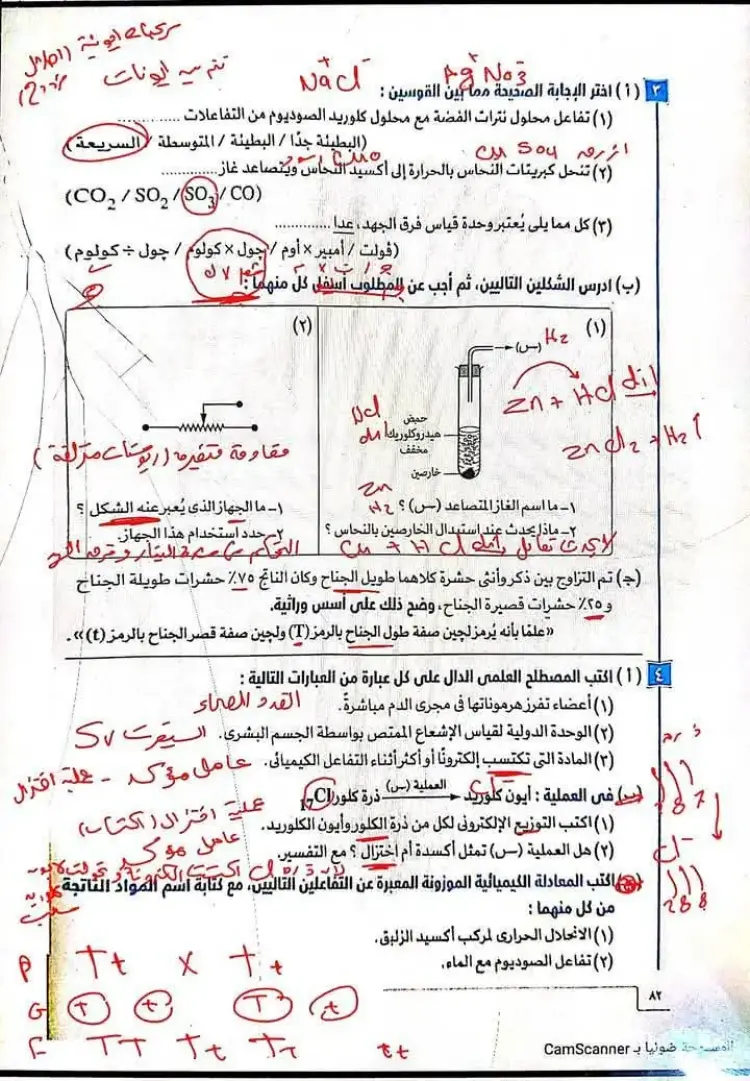 سريعات ايونية
تتم بين ايونات
Na⁺Cl⁻ Ag⁺No₃⁻
٣ (أ) اختر الإجابة الصحيحة مما بين القوسين :
(١) تفاعل محلول نترات الفضة مع محلول كلوريد الصوديوم من التفاعلات ............
(البطيئة جدًا / البطيئة / المتوسطة / السريعة)
ازرق Cu SO4 اسود CuO
(٢) تنحل كبريتات النحاس بالحرارة إلى أكسيد النحاس ويتصاعد غاز ............
(CO₂ / SO₂ / SO₃ / CO)
(٣) كل مما يلى يُعتبر وحدة قياس فرق الجهد، عدا ............
(ڤولت / أمبير × أوم / چول × كولوم / چول ÷ كولوم)
(ب) ادرس الشكلين التاليين، ثم أجب عن المطلوب أسفل كل منهما :
(١)
H₂
(س)
Zn + HCl dil
ZnCl₂ + H₂↑
HCl
dil
حمض هيدروكلوريك مخفف
خارصين
Zn
H₂
١- ما اسم الغاز المتصاعد (س) ؟
٢- ماذا يحدث عند استبدال الخارصين بالنحاس ؟
لا يحدث تفاعل Cu + HCl dil
(٢)
مقاومة متغيرة (ريوستات منزلقة)
١- ما الجهاز الذى يُعبر عنه الشكل ؟
٢- حدد استخدام هذا الجهاز.
التحكم فى شدة التيار وفرق الجهد
(جـ) تم التزاوج بين ذكر وأنثى حشرة كلاهما طويل الجناح وكان الناتج ٧٥٪ حشرات طويلة الجناح
و ٢٥٪ حشرات قصيرة الجناح، وضح ذلك على أسس وراثية.
«علمًا بأنه يُرمز لچين صفة طول الجناح بالرمز (T) ولچين صفة قصر الجناح بالرمز (t)».
٤ (أ) اكتب المصطلح العلمى الدال على كل عبارة من العبارات التالية :
(١) أعضاء تفرز هرموناتها فى مجرى الدم مباشرةً. الغدد الصماء
(٢) الوحدة الدولية لقياس الإشعاع الممتص بواسطة الجسم البشرى. السيفرت Sv
(٣) المادة التى تكتسب إلكترونًا أو أكثر أثناء التفاعل الكيميائى. عامل مؤكسد - عملية اختزال
(ب) فى العملية : أيون كلوريد العملية (س) ذرة كلور ₁₇Cl
2 8 7
عملية اختزال (اكتساب)
(١) اكتب التوزيع الإلكترونى لكل من ذرة الكلور وأيون الكلوريد.
عامل مؤكسد
(٢) هل العملية (س) تمثل أكسدة أم إختزال ؟ مع التفسير.
Cl⁻
2 8 8
(جـ) اكتب المعادلة الكيميائية الموزونة المعبرة عن التفاعلين التاليين، مع كتابة اسم المواد الناتجة
من كل منهما :
(١) الانحلال الحرارى لمركب أكسيد الزئبق.
(٢) تفاعل الصوديوم مع الماء.
P Tt X Tt
G T t T t
F TT Tt Tt tt
٨٢
الممسوحة ضوئيا بـ CamScanner